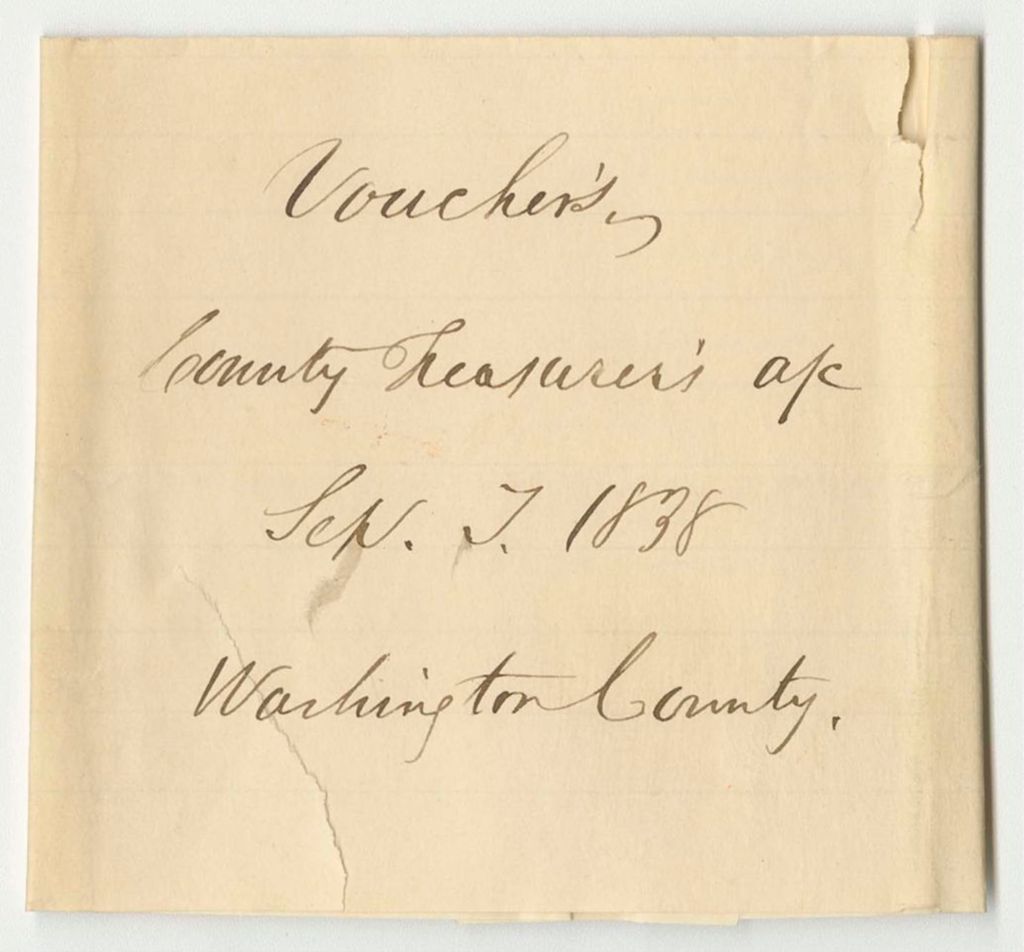 Voucher's,
County Treasurer's a/c
Sep. T. 1838
Washington County.